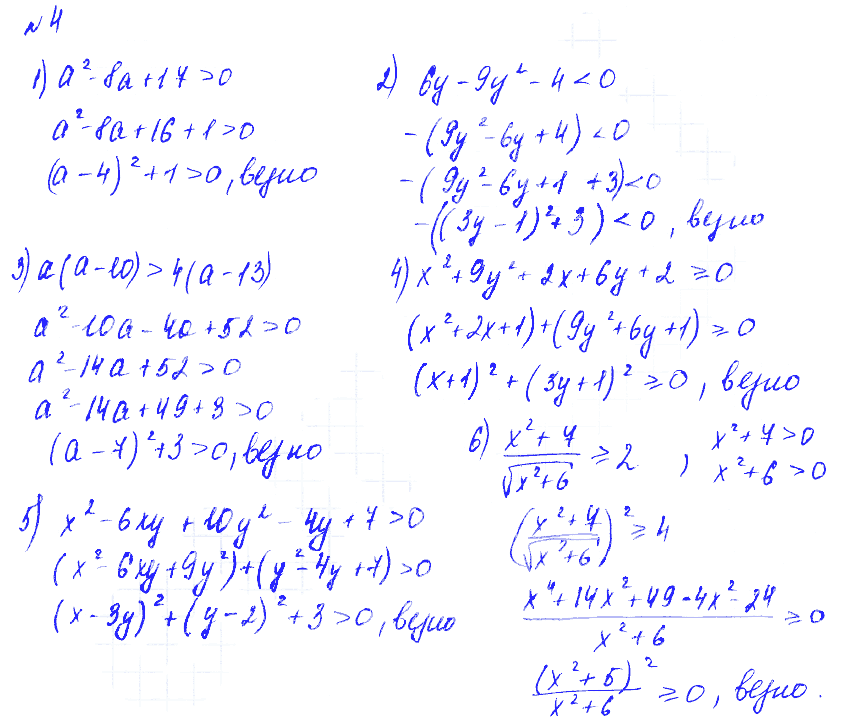 №4
1) a² - 8a + 17 > 0
a² - 8a + 16 + 1 > 0
(a - 4)² + 1 > 0, верно
2) 6y - 9y² - 4 < 0
-(9y² - 6y + 4) < 0
-(9y² - 6y + 1 + 3) < 0
-((3y - 1)² + 3) < 0, верно
3) a(a - 10) > 4(a - 13)
a² - 10a - 4a + 52 > 0
a² - 14a + 52 > 0
a² - 14a + 49 + 3 > 0
(a - 7)² + 3 > 0, верно
4) x² + 9y² + 2x + 6y + 2 ≥ 0
(x² + 2x + 1) + (9y² + 6y + 1) ≥ 0
(x + 1)² + (3y + 1)² ≥ 0, верно
5) x² - 6xy + 10y² - 4y + 7 > 0
(x² - 6xy + 9y²) + (y² - 4y + 7) > 0
(x - 3y)² + (y - 2)² + 3 > 0, верно
6) (x² + 7)/√(x² + 6) ≥ 2, x² + 7 > 0
x² + 6 > 0
((x² + 7)/√(x² + 6))² ≥ 4
(x⁴ + 14x² + 49 - 4x² - 24)/(x² + 6) ≥ 0
(x² + 5)²/(x² + 6) ≥ 0, верно.